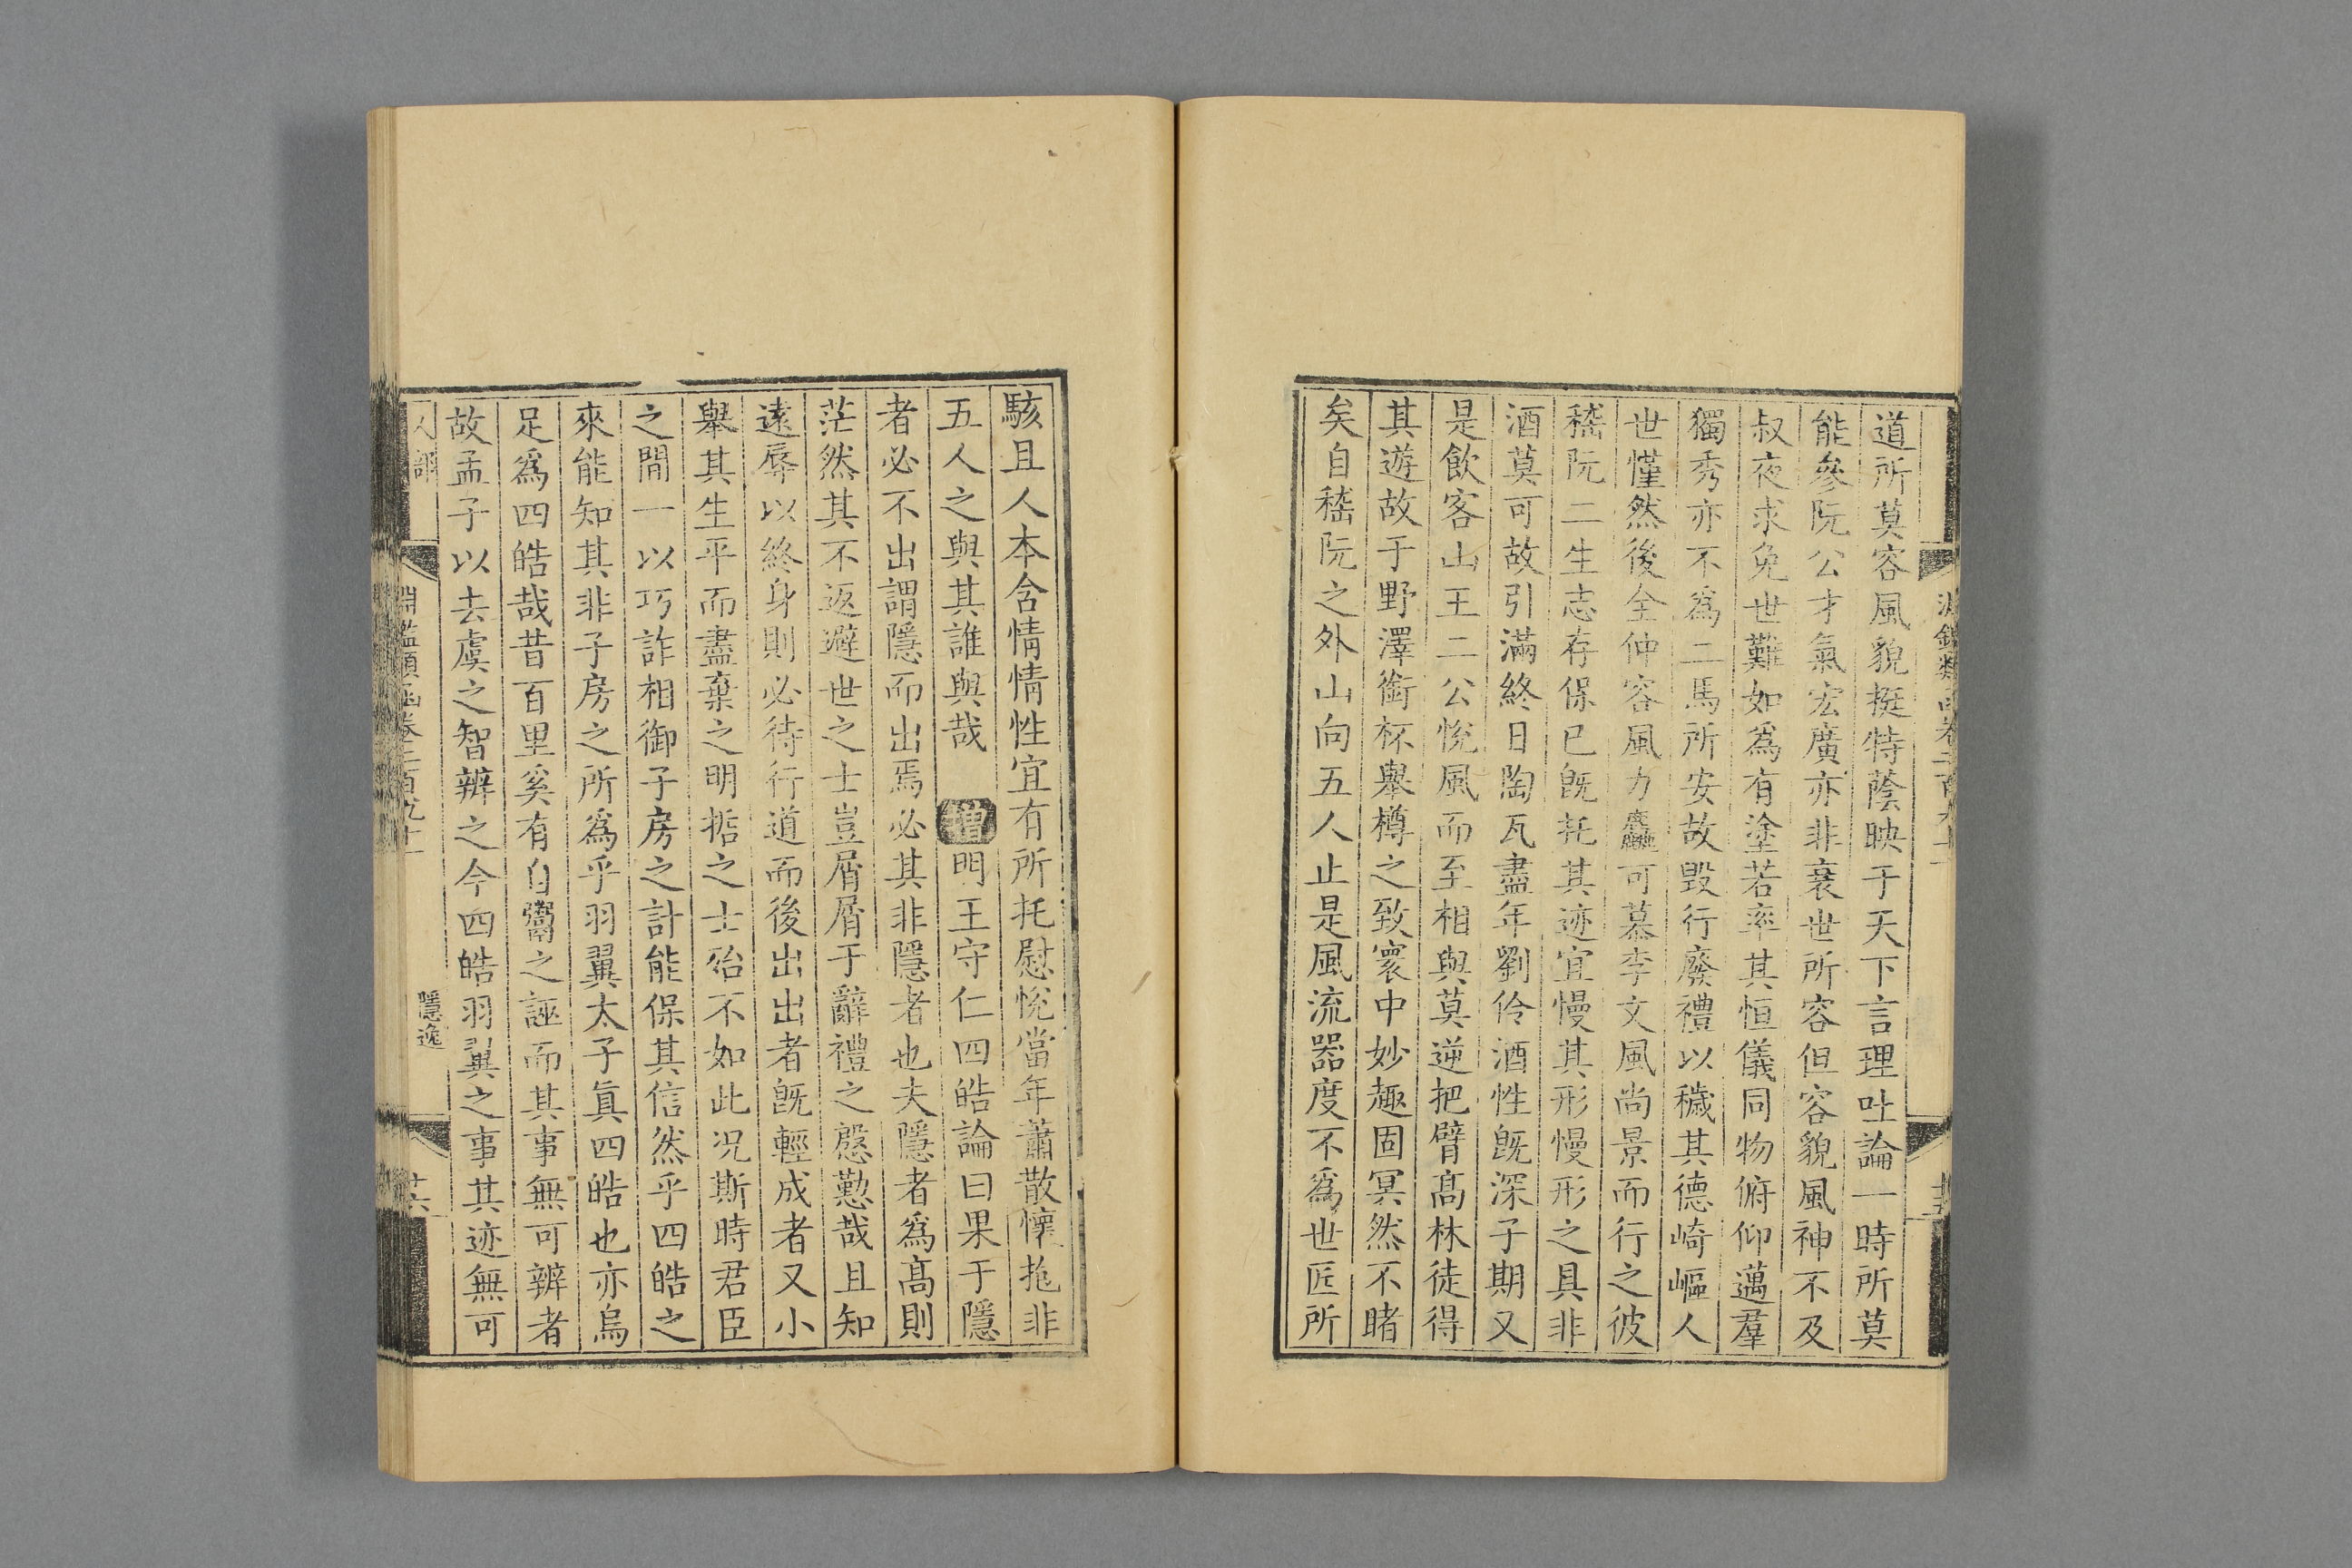 道所莫容風貌挺特蔭映于天下言理吐論一時所莫
能參阮公才氣宏廣亦非衰世所容但容貌風神不及
叔夜求免世難如爲有塗若率其恒儀同物俯仰邁羣
獨秀亦不爲二馬所安故毀行廢禮以穢其德崎嶇人
世僅然後全仲容風力麤可慕李文風尚景而行之彼
嵇阮二生志存保已旣托其迹宜慢其形慢形之具非
酒莫可故引滿終日陶瓦盡年劉伶酒性旣深子期又
是飲客山王二公悅風而至相與莫逆把臂髙林徒得
其遊故于野澤銜杯舉樽之致寰中妙趣固冥然不睹
矣自嵇阮之外山向五人止是風流器度不爲世匠所
駭且人本含情情性宜有所托慰悅當年蕭散懷抱非
五人之與其誰與哉 增明王守仁四皓論曰果于隱
者必不出謂隱而出焉必其非隱者也夫隱者爲髙則
茫然其不返避世之士豈屑屑于辭禮之慇懃哉且知
遠辱以終身則必待行道而後出出者旣輕成者又小
舉其生平而盡棄之明哲之士殆不如此况斯時君臣
之間一以巧詐相御子房之計能保其信然乎四皓之
來能知其非子房之所爲乎羽翼太子眞四皓也亦烏
足爲四皓哉昔百里奚有自鬻之誣而其事無可辨者
故孟子以去虞之智辨之今四皓羽翼之事其迹無可
人部
淵鑑類函卷二百九十一
隱逸